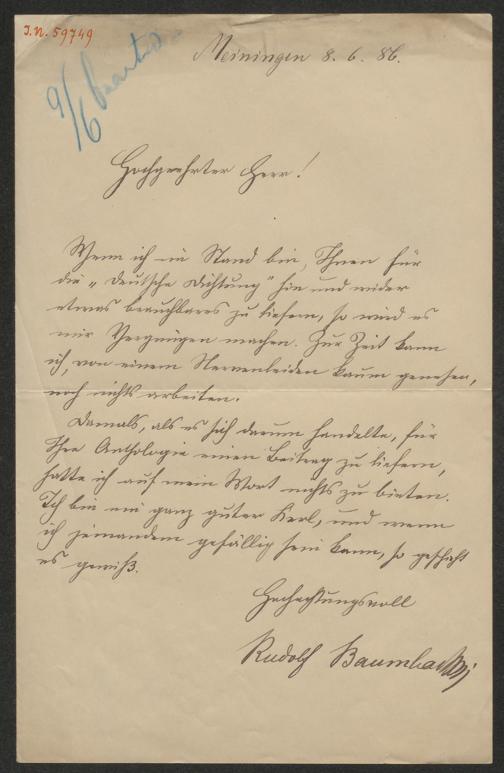 I.N. 59749
9/6 beantw.
Meiningen 8. 6. 86.
Hochgeehrter Herr!
Wenn ich im Stand bin, Ihnen für
die „Deutsche Dichtung" hin und wider
etwas brauchbares zu liefern, so wird es
mir Vergnügen machen. Zur Zeit kann
ich, von einem Nervenleiden kaum genesen,
noch nichts arbeiten.
Damals, als es sich darum handelte, für
Ihre Anthologie einen Beitrag zu liefern,
hatte ich auf mein Wort nichts zu bieten.
Ich bin ein ganz guter Kerl, und wenn
ich jemandem gefällig sein kann, so geschieht
es gewiß.
Hochachtungsvoll
Rudolf Baumbach